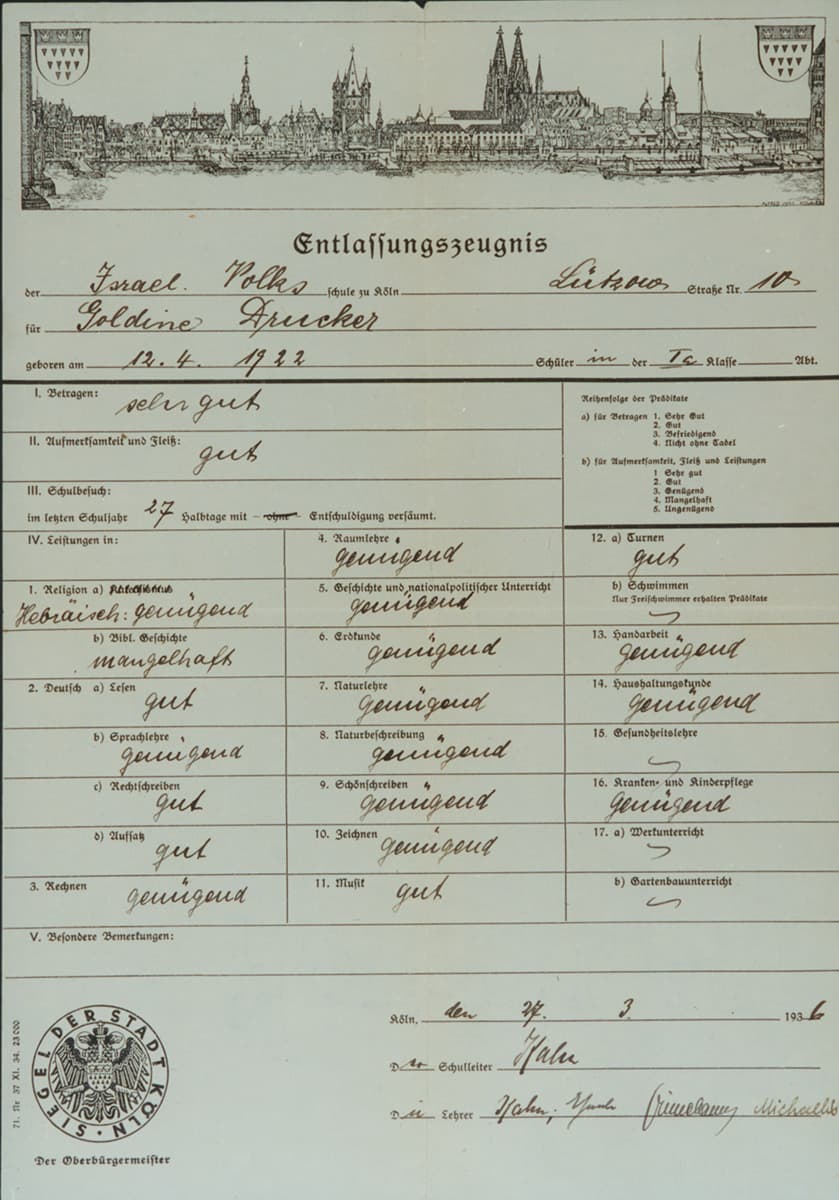 Entlassungszeugnis
der Israel. Volks schule zu Köln Lützow Straße Nr. 10
für Goldine Drucker
geboren am 12. 4. 1922 Schüler in der Klasse Abt.
I. Betragen:
sehr gut
II. Aufmerksamkeit und Fleiß:
gut
III. Schulbesuch:
im letzten Schuljahr 27 Halbtage mit - ohne - Entschuldigung versäumt.
Reihenfolge der Prädikate
a) für Betragen 1. Sehr Gut
2. Gut
3. Befriedigend
4. Nicht ohne Tadel
b) für Aufmerksamkeit, Fleiß und Leistungen
1 Sehr gut
2. Gut
3. Genügend
4. Mangelhaft
5. Ungenügend
IV. Leistungen in:
1. Religion a)
Hebräisch: genügend
b) Bibl. Geschichte
mangelhaft
2. Deutsch a) Lesen
gut
b) Sprachlehre
genügend
c) Rechtschreiben
gut
d) Aufsatz
gut
3. Rechnen
genügend
4. Raumlehre
genügend
5. Geschichte und nationalpolitischer Unterricht
genügend
6. Erdkunde
genügend
7. Naturlehre
genügend
8. Naturbeschreibung
genügend
9. Schönschreiben
genügend
10. Zeichnen
genügend
11. Musik
gut
12. a) Turnen
gut
b) Schwimmen
Nur Freischwimmer erhalten Prädikate
13. Handarbeit
genügend
14. Haushaltungskunde
genügend
15. Gesundheitslehre
16. Kranken- und Kinderpflege
genügend
17. a) Werkunterricht
b) Gartenbauunterricht
V. Besondere Bemerkungen:
Köln, den 27. 3. 1936
D Schulleiter Kahn
D Lehrer Kahn, Michaelis
SIEGEL DER STADT KÖLN
Der Oberbürgermeister
71. Nr 37 XI. 34. 23 000